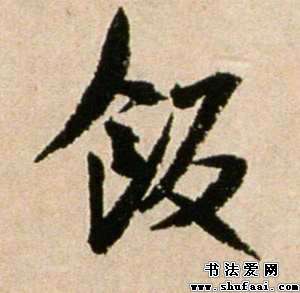 飯
书法爱网
www.shufaai.com